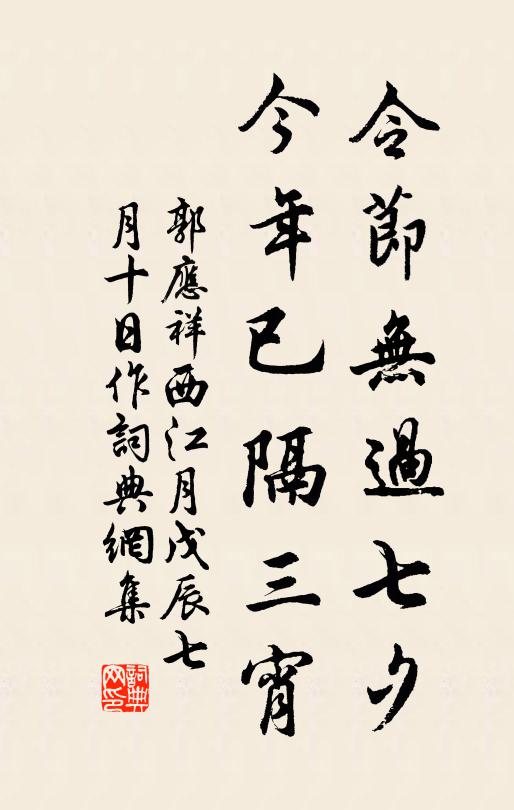 令節無過七夕
今年已隔三宵
郭應祥西江月戊辰七
月十日作詞典網集
詞典
网印